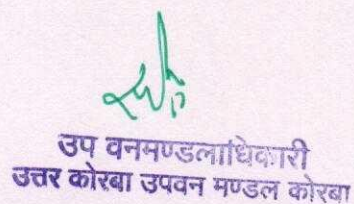 उप वनमण्डलाधिकारी
उत्तर कोरबा उपवन मण्डल कोरबा